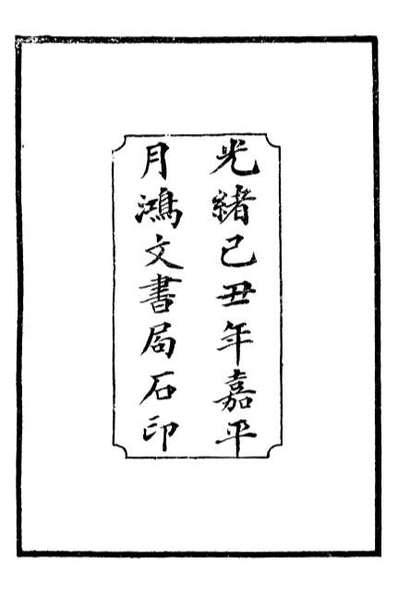 光緒己丑年嘉平
月鴻文書局石印